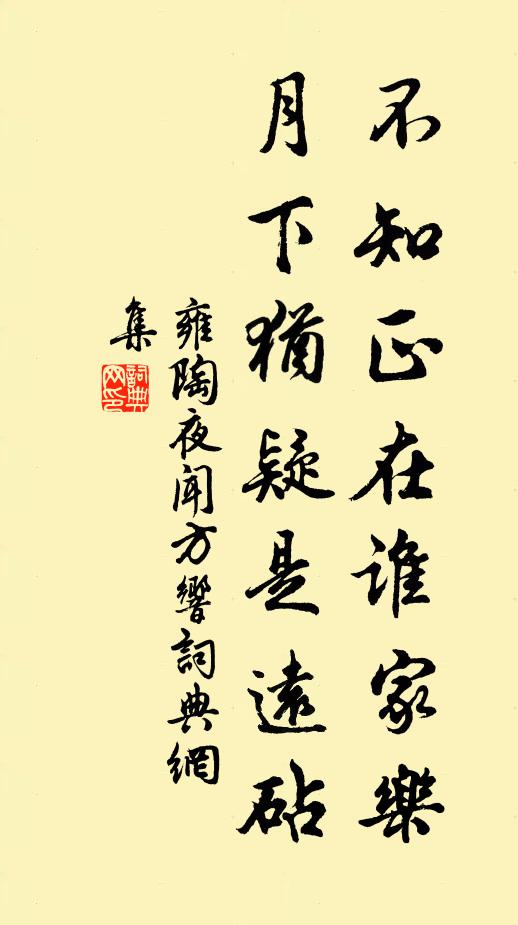 不知正在谁家樂
月下猶疑是遠砧
雍陶夜闻方響詞典網
集
詞典
网印